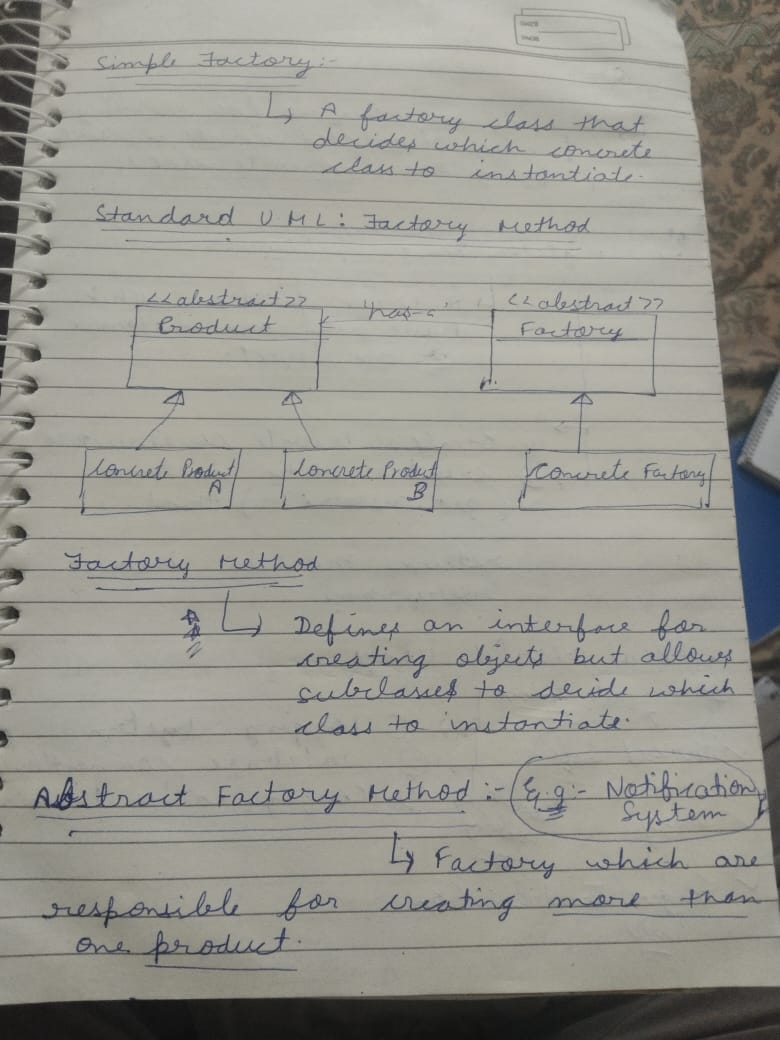 DATE
PAGE
Simple Factory:-
↳ A factory class that
decides which concrete
class to instantiate.
Standard UML: Factory Method
<<abstract>> "has-a" <<abstract>>
Product Factory
Concrete Product A Concrete Product B Concrete Factory
Factory Method
↳ Defines an interface for
creating objects but allows
subclasses to decide which
class to instantiate.
Abstract Factory Method :- E.g:- Notification
System
↳ Factory which are
responsible for creating more than
one product.